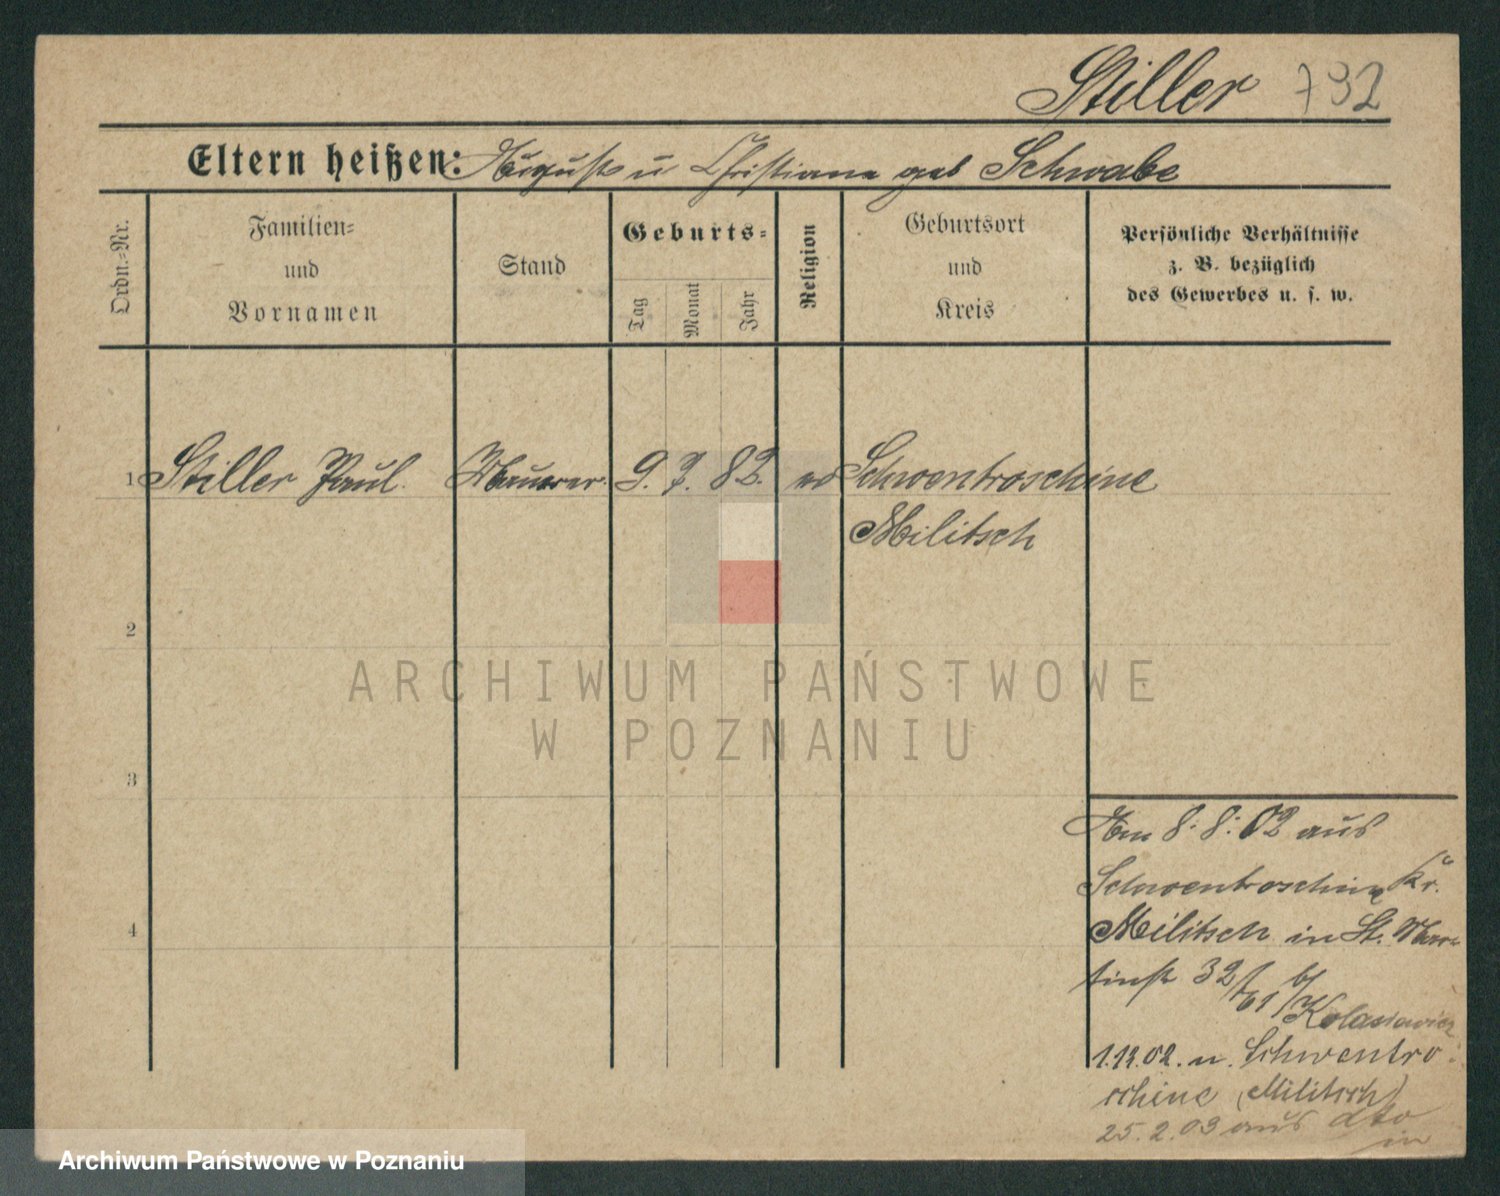 Stiller 792
Eltern heißen: August u Christiana geb Schwabe
Ordn.-Nr.
Familien-
und
Vornamen
Stand
Geburts-
Tag
Monat
Jahr
Religion
Geburtsort
und
Kreis
Persönliche Verhältnisse
z. B. bezüglich
des Gewerbes u. s. w.
1 Stiller Paul. Maurer. 9. 7. 82. ev Schwentroschine
Militsch
2
ARCHIWUM PAŃSTWOWE
W POZNANIU
3
4
Am 8. 8. 02 aus
Schwentroschine Kr.
Militsch in St. Mar-
tinstr 32 b/
Kolasiewicz
1.12.02. n. Schwentro-
schine (Militsch)
25.2.03 aus dto
in
Archiwum Państwowe w Poznaniu